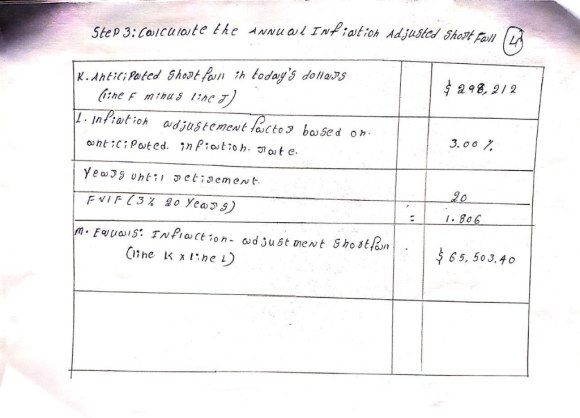 Step 3: Calculate the Annual Inflation Adjusted Short Fall 4
K. Anticipated Shortfall in today's dollars $ 298,212
(line F minus line J)
L. Inflation adjustement factor based on
anticipated inflation rate. 3.00 %
Years until retirement 20
FVIF (3% 20 Years) = 1.806
M. Equals: Inflaction-adjustment Shortfall
(line K x line L) $ 65,503.40